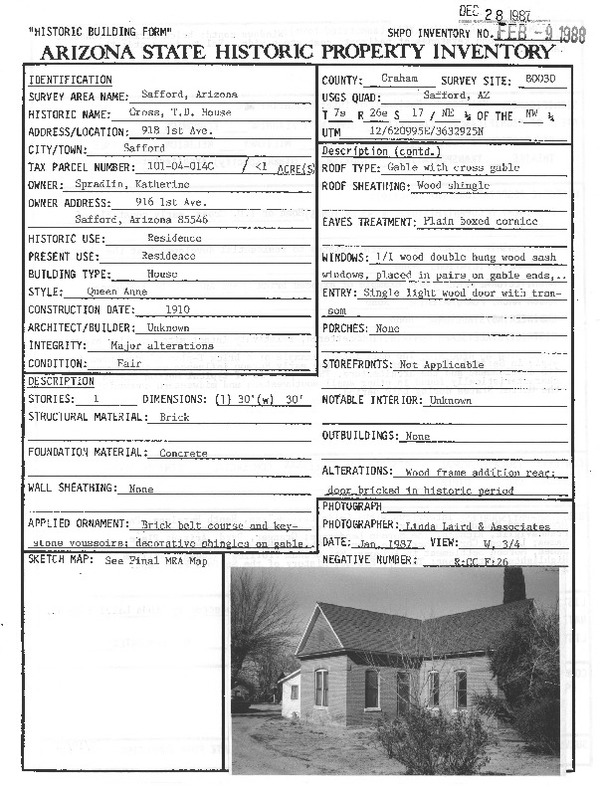 DEC 28 1987
"HISTORIC BUILDING FORM"
SHPO INVENTORY NO. FEB - 9 1988
ARIZONA STATE HISTORIC PROPERTY INVENTORY
IDENTIFICATION
SURVEY AREA NAME: Safford, Arizona
HISTORIC NAME: Cross, T.D. House
ADDRESS/LOCATION: 918 1st Ave.
CITY/TOWN: Safford
TAX PARCEL NUMBER: 101-04-014C / <1 ACRE(S)
OWNER: Spradlin, Katherine
OWNER ADDRESS: 916 1st Ave.
Safford, Arizona 85546
HISTORIC USE: Residence
PRESENT USE: Residence
BUILDING TYPE: House
STYLE: Queen Anne
CONSTRUCTION DATE: 1910
ARCHITECT/BUILDER: Unknown
INTEGRITY: Major alterations
CONDITION: Fair
DESCRIPTION
STORIES: 1 DIMENSIONS: (l) 30'(w) 30'
STRUCTURAL MATERIAL: Brick
FOUNDATION MATERIAL: Concrete
WALL SHEATHING: None
APPLIED ORNAMENT: Brick belt course and key-
stone voussoirs; decorative shingles on gable..
SKETCH MAP: See Final MRA Map
COUNTY: Graham SURVEY SITE: 80030
USGS QUAD: Safford, AZ
T 7s R 26e S 17 / NE ¼ OF THE NW ¼
UTM 12/620995E/3632925N
Description (contd.)
ROOF TYPE: Gable with cross gable
ROOF SHEATHING: Wood shingle
EAVES TREATMENT: Plain boxed cornice
WINDOWS: 1/1 wood double hung wood sash
windows, placed in pairs on gable ends,..
ENTRY: Single light wood door with tran-
som
PORCHES: None
STOREFRONTS: Not Applicable
NOTABLE INTERIOR: Unknown
OUTBUILDINGS: None
ALTERATIONS: Wood frame addition rear;
door bricked in historic period
PHOTOGRAPH
PHOTOGRAPHER: Linda Laird & Associates
DATE: Jan. 1987 VIEW: W, 3/4
NEGATIVE NUMBER: R:CC F:26